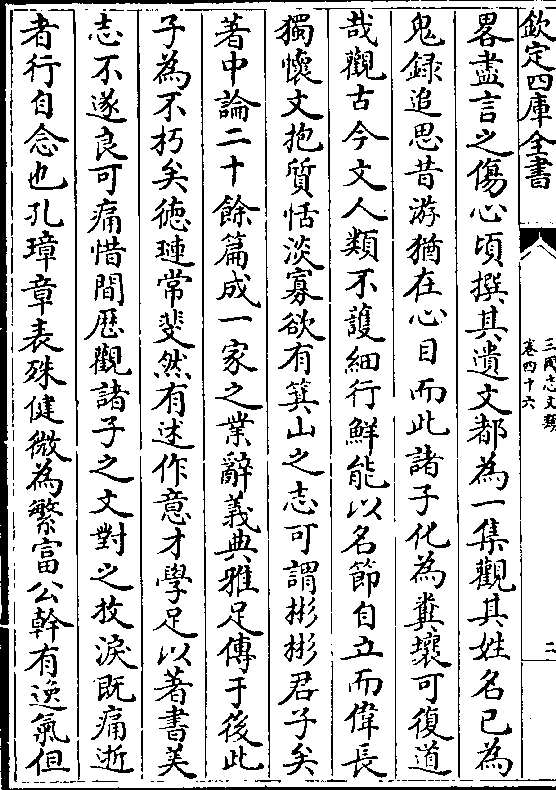 欽定四庫全書
三國志文類
卷四十六
二
畧盡言之傷心頃撰其遺文都為一集觀其姓名已為
鬼録追思昔游猶在心目而此諸子化為糞壤可復道
哉觀古今文人類不護細行鮮能以名節自立而偉長
獨懷文抱質恬淡寡欲有箕山之志可謂彬彬君子矣
著中論二十餘篇成一家之業辭義典雅足傳于後此
子為不朽矣徳璉常斐然有述作意才學足以著書美
志不遂良可痛惜間歴觀諸子之文對之抆淚既痛逝
者行自念也孔璋章表殊健微為繁富公幹有逸氣但